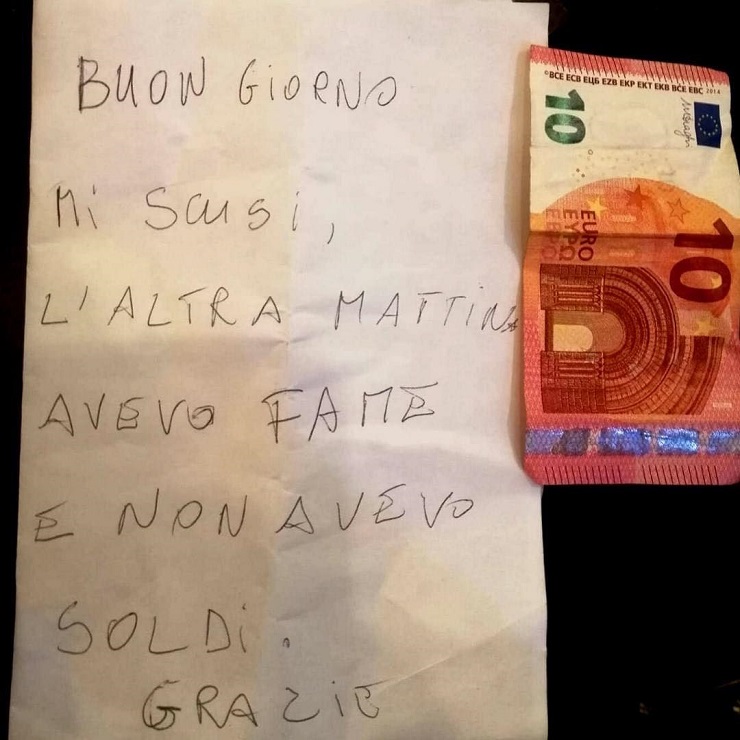 BUON GiORNO
Mi Scusi,
L'ALTRA MATTiNA
AVEVO FAME
E NON AVEVO
SOLDi.
GRAZiE
©BCE ECB ЕЦБ EZB EKP EKT EKB BĊE EBC 2014
10
10
EURO
ΕΥΡΩ
ЕВРО